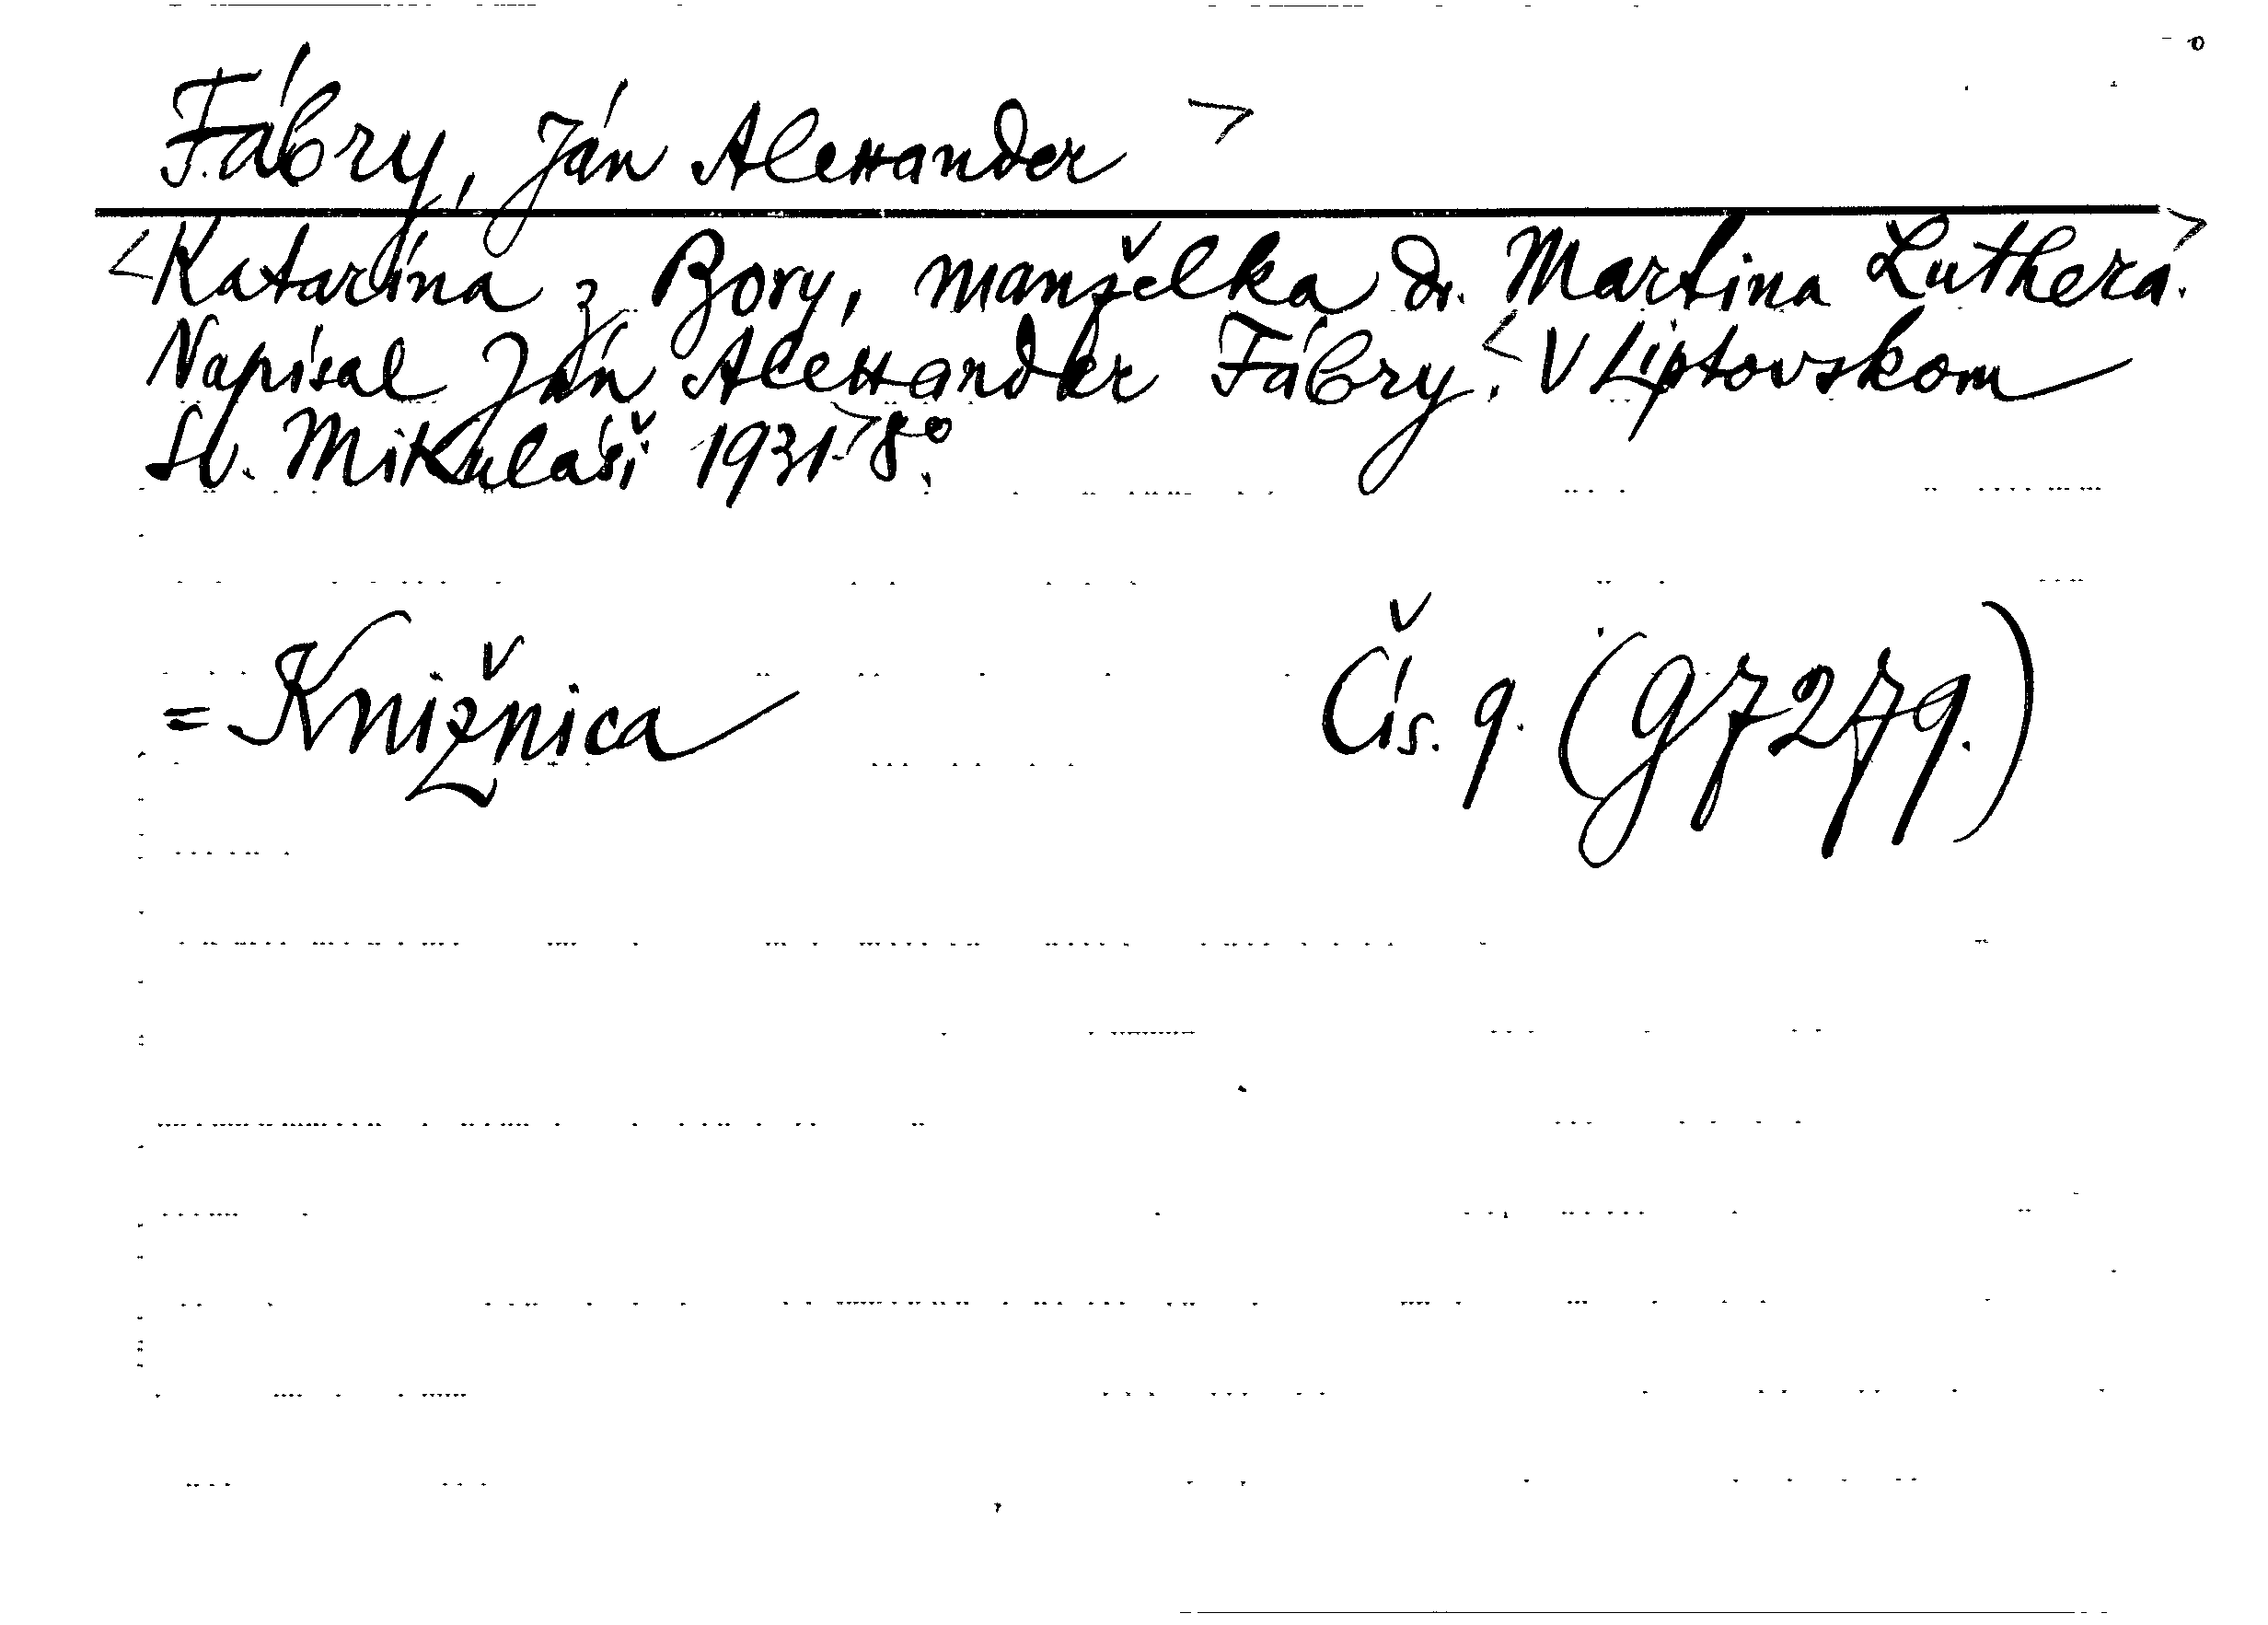 Fábry, Ján Alexander >
<Katarína z Bory, manželka dr. Martina Luthera.>
Napísal Ján Alexander Fábry. <V Liptovskom
Sv. Mikuláši 1931> 8°.
= Knižnica Čís. 9. (g7279.)